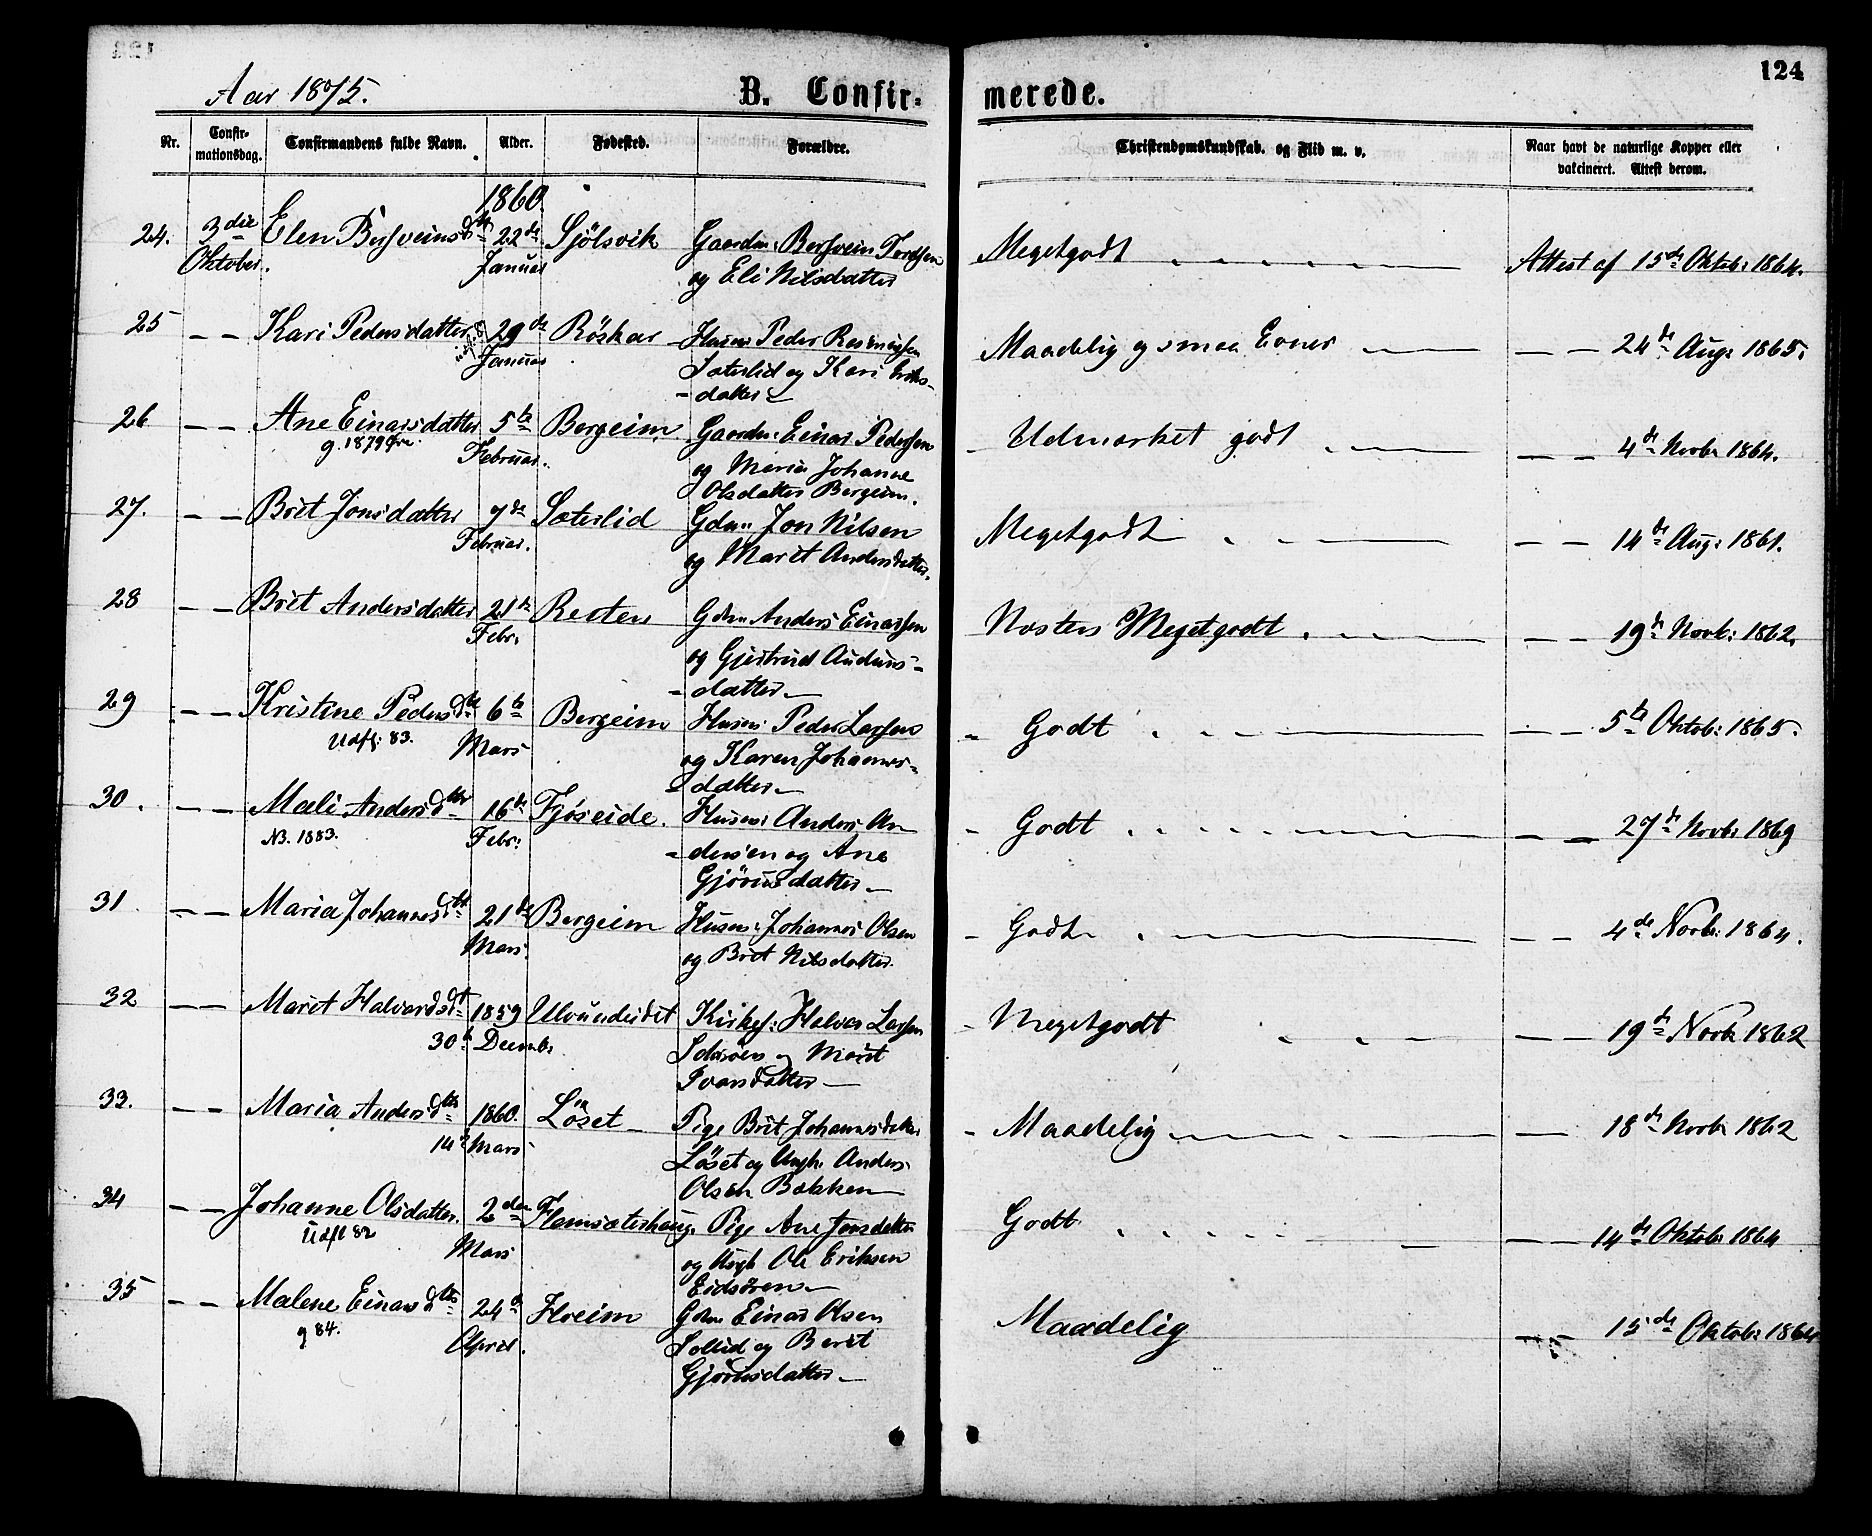 124
Aar 1875.
B. Confir-
merede.
Nr.
Confir-
mationsdag.
Confirmandens fulde Navn.
Alder.
Fødested.
Forældre.
Christendomskundskab. og Flid m. v.
Naar havt de naturlige Kopper eller
vakcineret. Attest derom.
1860.
24. 3die Elen Bersveinsdtr 22de Sjölsvik Gaardm: Bersvein Tordsen Megetgodt Attest af 15de Oktob: 1864.
Oktober. Januar og Eli Nilsdatter
25 — — Kari Pedersdatter 29de Röskar Husm: Peder Rasmussen Maadelig og smaa Evner — — 24de Aug: 1865.
Januar Sæterlid og Kari Eriks-
- datter —
26 — — Ane Einarsdatter 5te Bergeim Gaardm: Einar Pedersen - Udmærket godt — — 4de Novb: 1864.
g. 1879 Februar. og Maria Johanne
Olsdatter Bergeim.
27. — — Brit Jonsdatter 7de Sæterlid Gdm: Jon Nilsen Megetgodt — — 14de Aug: 1861.
Februar. og Marit Andersdatter.
28 — — Brit Andersdatter 21de Reiten Gdm: Anders Einarsen Næsten Megetgodt — — 19de Novb: 1862.
Febr: og Gjertrud Auduns-
- datter —
29 — — Kristine Pedersdtr 6te Bergeim Husm: Peder Larsen - Godt — — 5te Oktob: 1865.
Udfl: 83. Mars og Karen Johannes-
datter —
30. — — Mali Andersdtter 16de Fjøseide. Husm: Anders An- - Godt — — 27de Novb: 1869
N3. 1883. Febr: - dersen og Ane
Gjörunsdatter —
31. — — Maria Johannesdtr 21de Bergeim Husm: Johannes Olsen - Godt — — 4de Novb: 1864.
Mars. og Brit Nilsdatter.
32 — — Marit Halvardsdtr 1859 Ulvundeidet Kirkes: Halvor Larsen - Megetgodt — — 19de Novb: 1862
30te Decemb: og Marit
Ivarsdatter —
33. — — Maria Andersdtter 1860. Löset Pige Brit Johannesdatter - Maadelig — — 18de Novb: 1862
14de Mars Löset og Ungk. Anders
Olsen Bakken
34 — — Johanne Olsdatter. 2den Flemsæterhaug. Pige Ane Jonsdatter Godt — — 14de Oktob: 1864
Udfl 82 Mars og Ungk Ole Eriksen
Eidsören —
35 — — Malene Einarsdtter 24de Hoeim Gdm: Einar Olsen Maadelig — — 15de Oktob: 1864
g 84. April. Sollid og Berit
Gjörunsdatter —